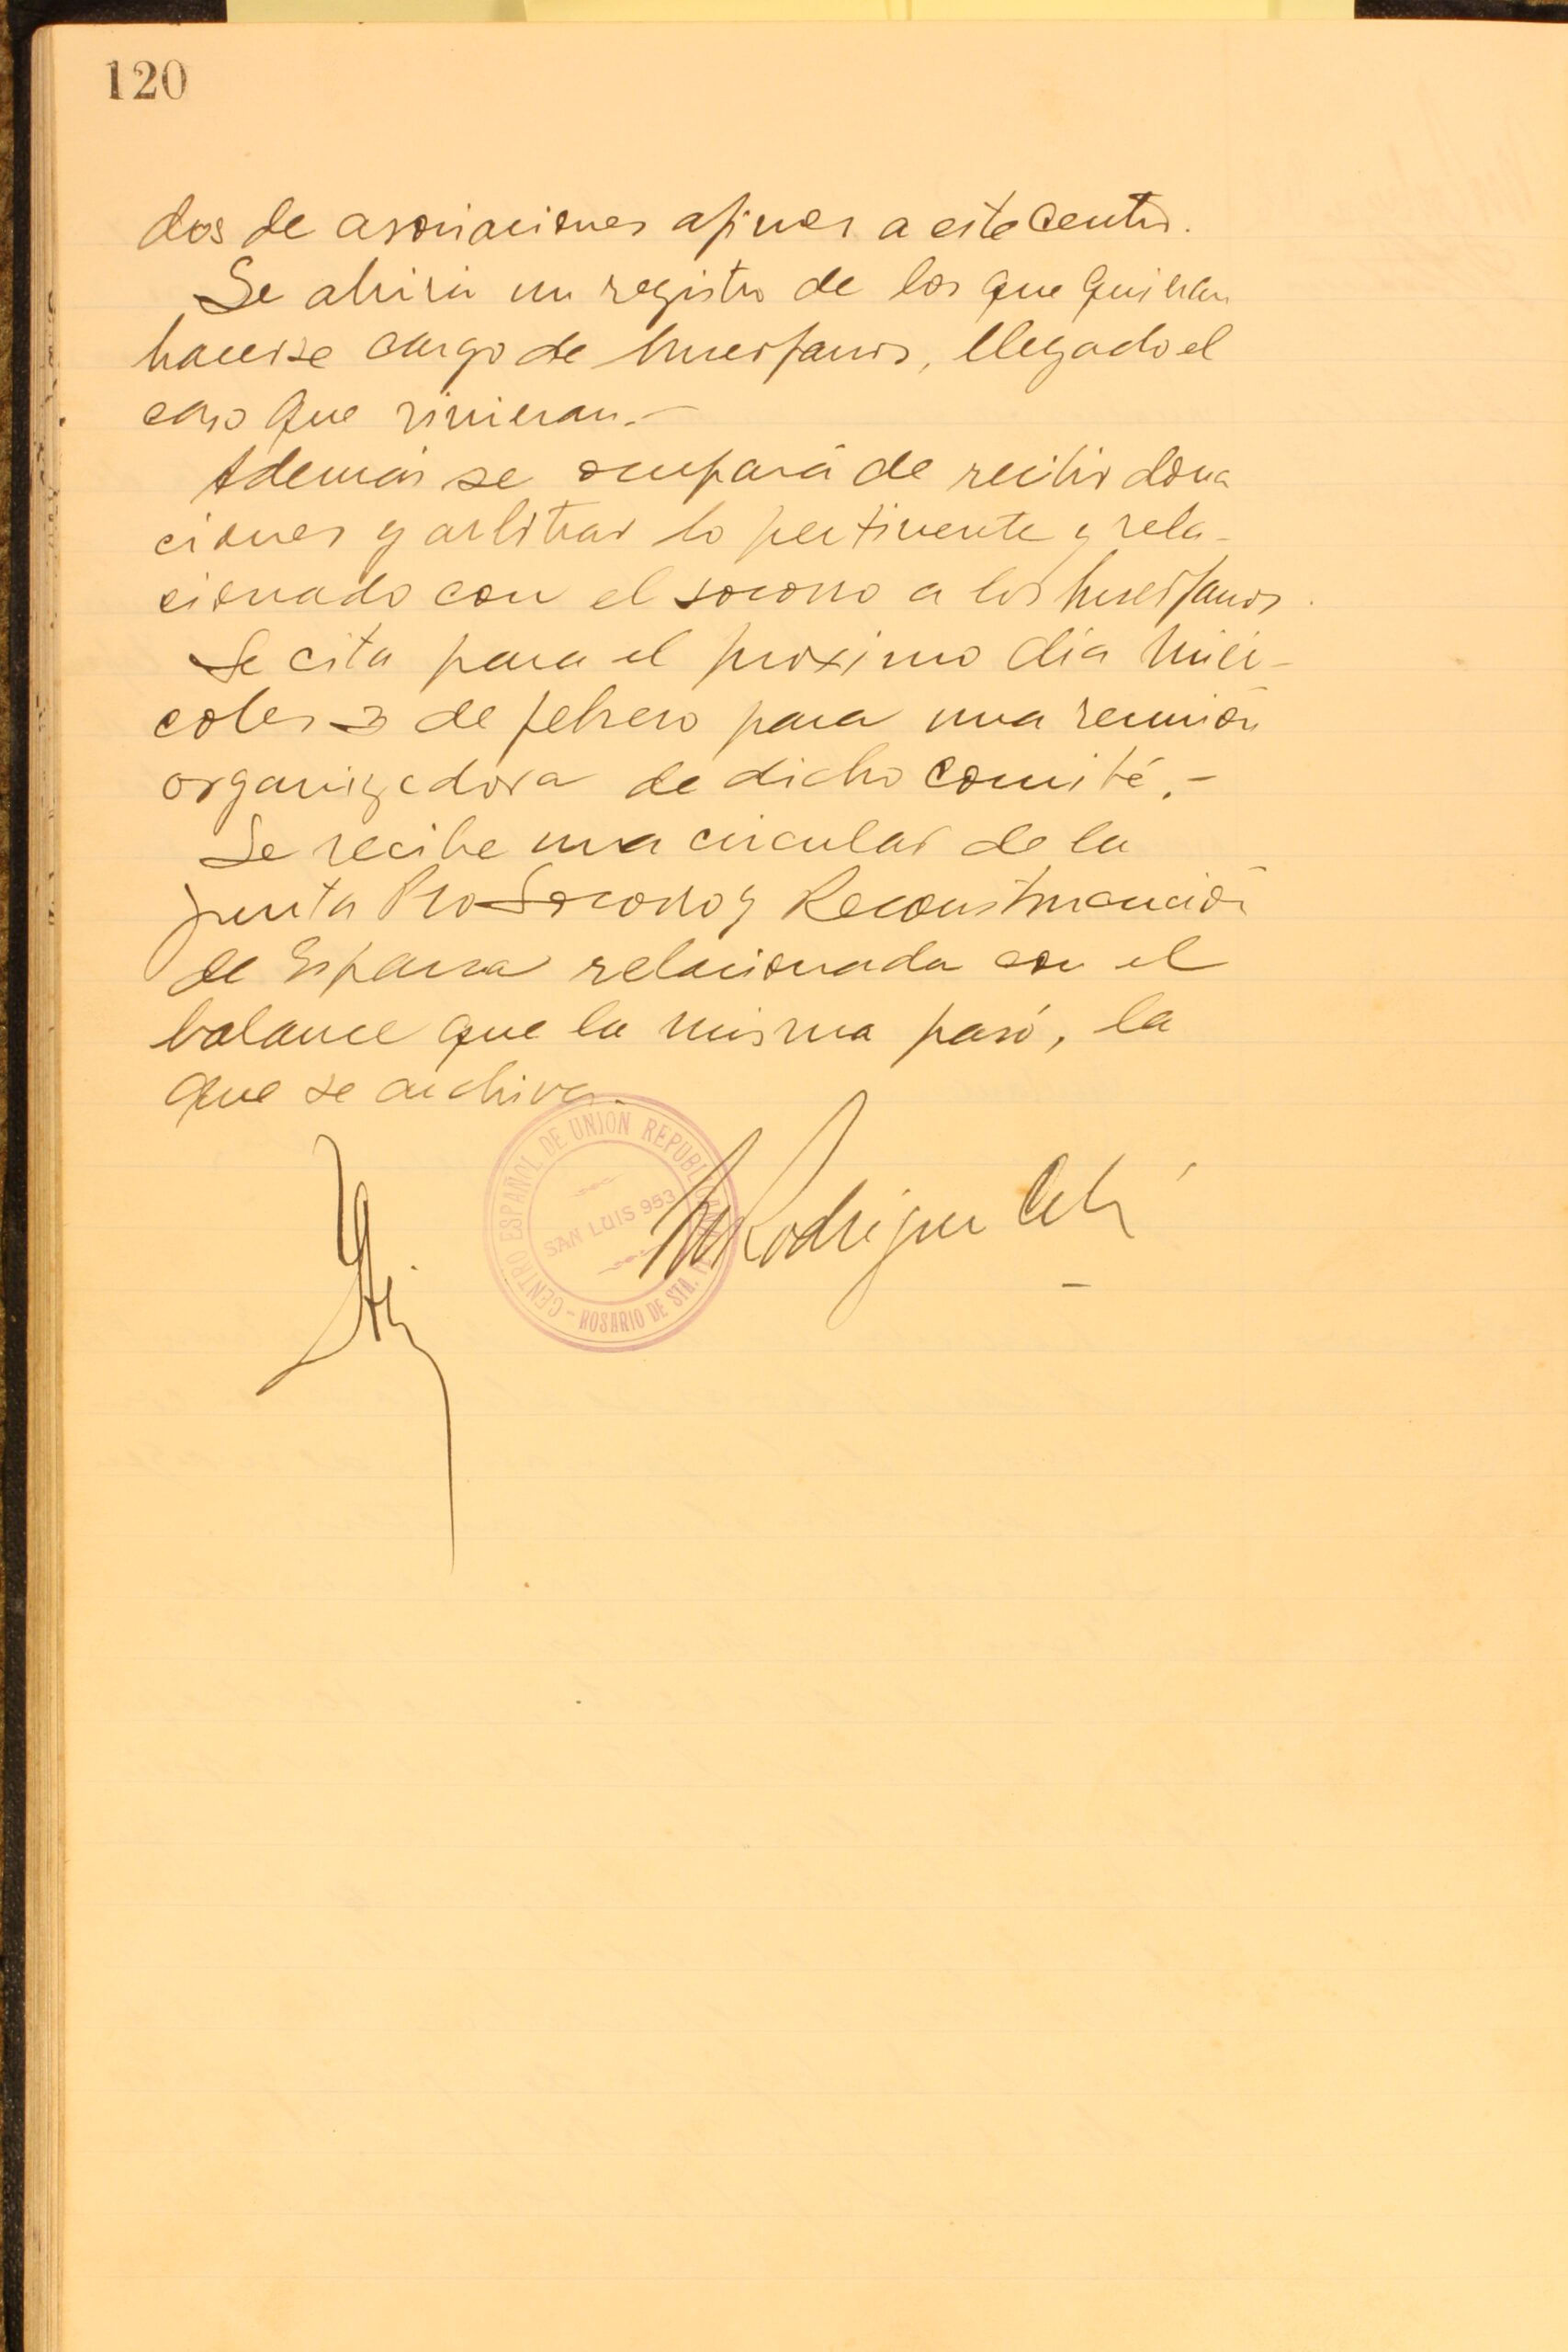 120
dos de asociaciones afines a este Centro.
Se abrirá un registro de los que quieran
hacerse cargo de huerfanos, llegado el
caso que vinieran.-
Además se ocupará de recibir dona
ciones y arbitrar lo pertinente y rela-
cionado con el socorro a los huerfanos.
Se cita para el proximo día miér-
coles 3 de febrero para una reunión
organizadora de dicho comité.-
Se recibe una circular de la
junta Pro Socorro y Reconstrucción
de España relacionada con el
balance que la misma pasó, la
que se archiva.-
CENTRO ESPAÑOL DE UNION REPUBLICANA - ROSARIO DE STA. FE
SAN LUIS 953
M Rodriguez